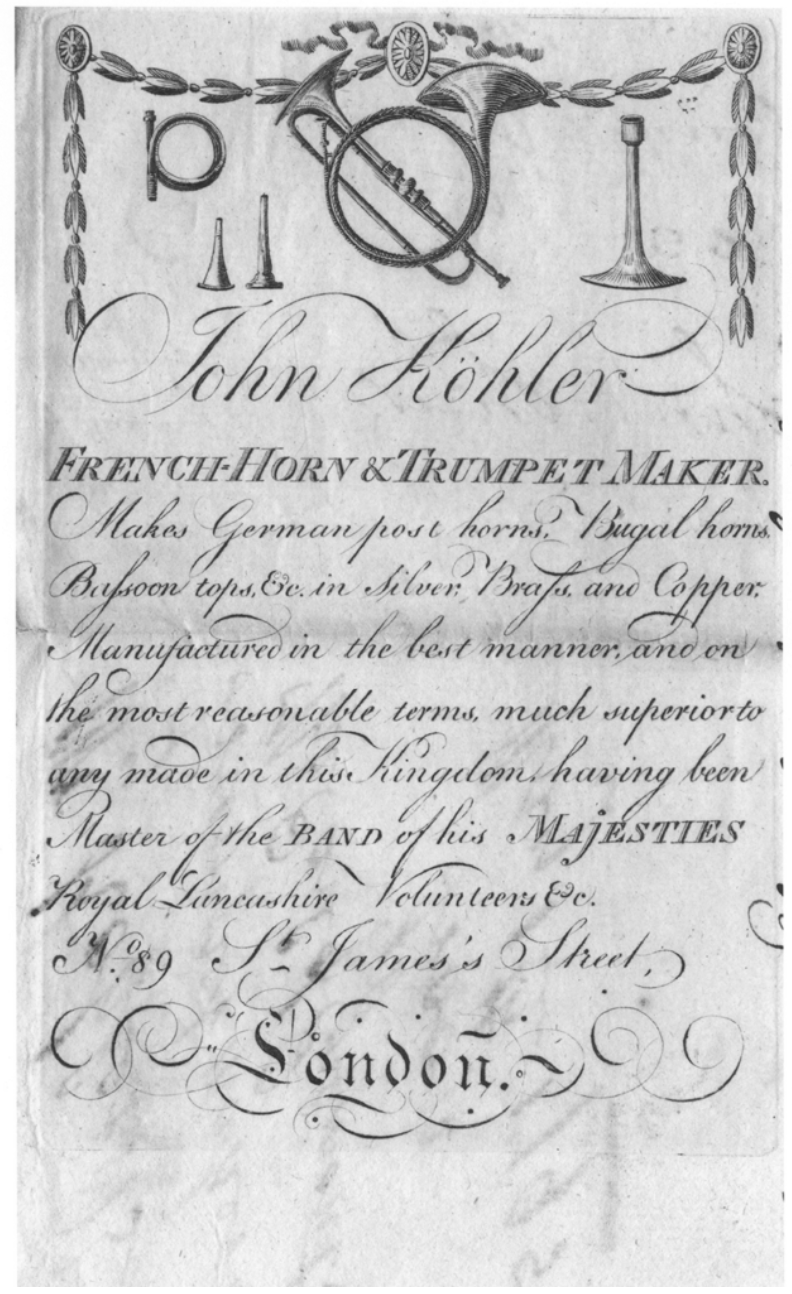 John Köhler
FRENCH-HORN & TRUMPET MAKER.
Makes German post horns, Bugal horns,
Baſsoon tops, &c. in Silver, Braſs, and Copper,
Manufactured in the best manner, and on
the most reasonable terms, much superior to
any made in this Kingdom, having been
Master of the BAND of his MAJESTIES
Royal Lancashire Volunteers &c.
No. 89 St. James's Street,
London.